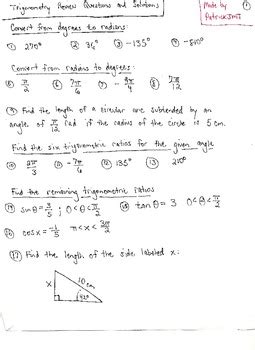 Trigonometry Review Questions and Solutions
Made by
PatrickJMT
Convert from degrees to radians:
① 270° ② 36° ③ -135° ④ -810°
Convert from radians to degrees:
⑤ π/9 ⑥ 7π/6 ⑦ -9π/4 ⑧ 7π/12
⑨ Find the length of a circular arc subtended by an
angle of π/12 rad if the radius of the circle is 5 cm.
Find the six trigonometric ratios for the given angle
⑩ 2π/3 ⑪ -7π/6 ⑫ 135° ⑬ 210°
Find the remaining trigonometric ratios
⑭ sin θ = 3/5 ; 0<θ<π/2 ⑮ tan θ = 3 0<θ<π/2
⑯ cos x = -1/5 π<x<3π/2
⑰ Find the length of the side labeled x:
x 10 cm